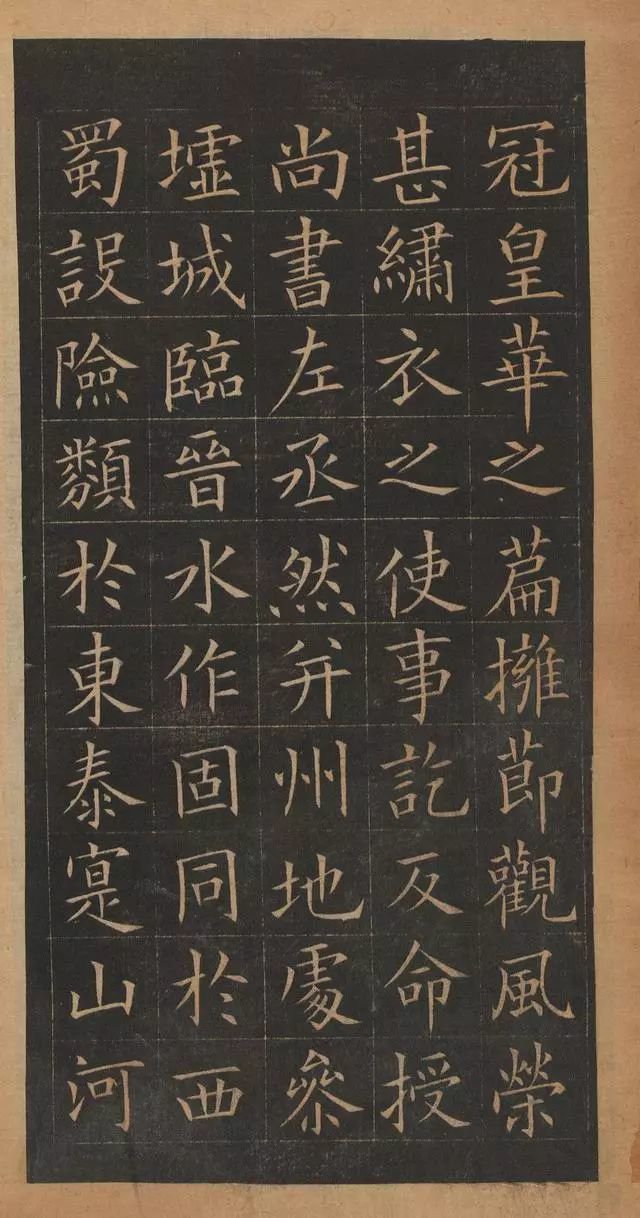 冠皇華之篇擁節觀風榮
甚繡衣之使事訖反命授
尚書左丞然并州地處參
墟城臨晉水作固同於西
蜀設險類於東泰寔山河